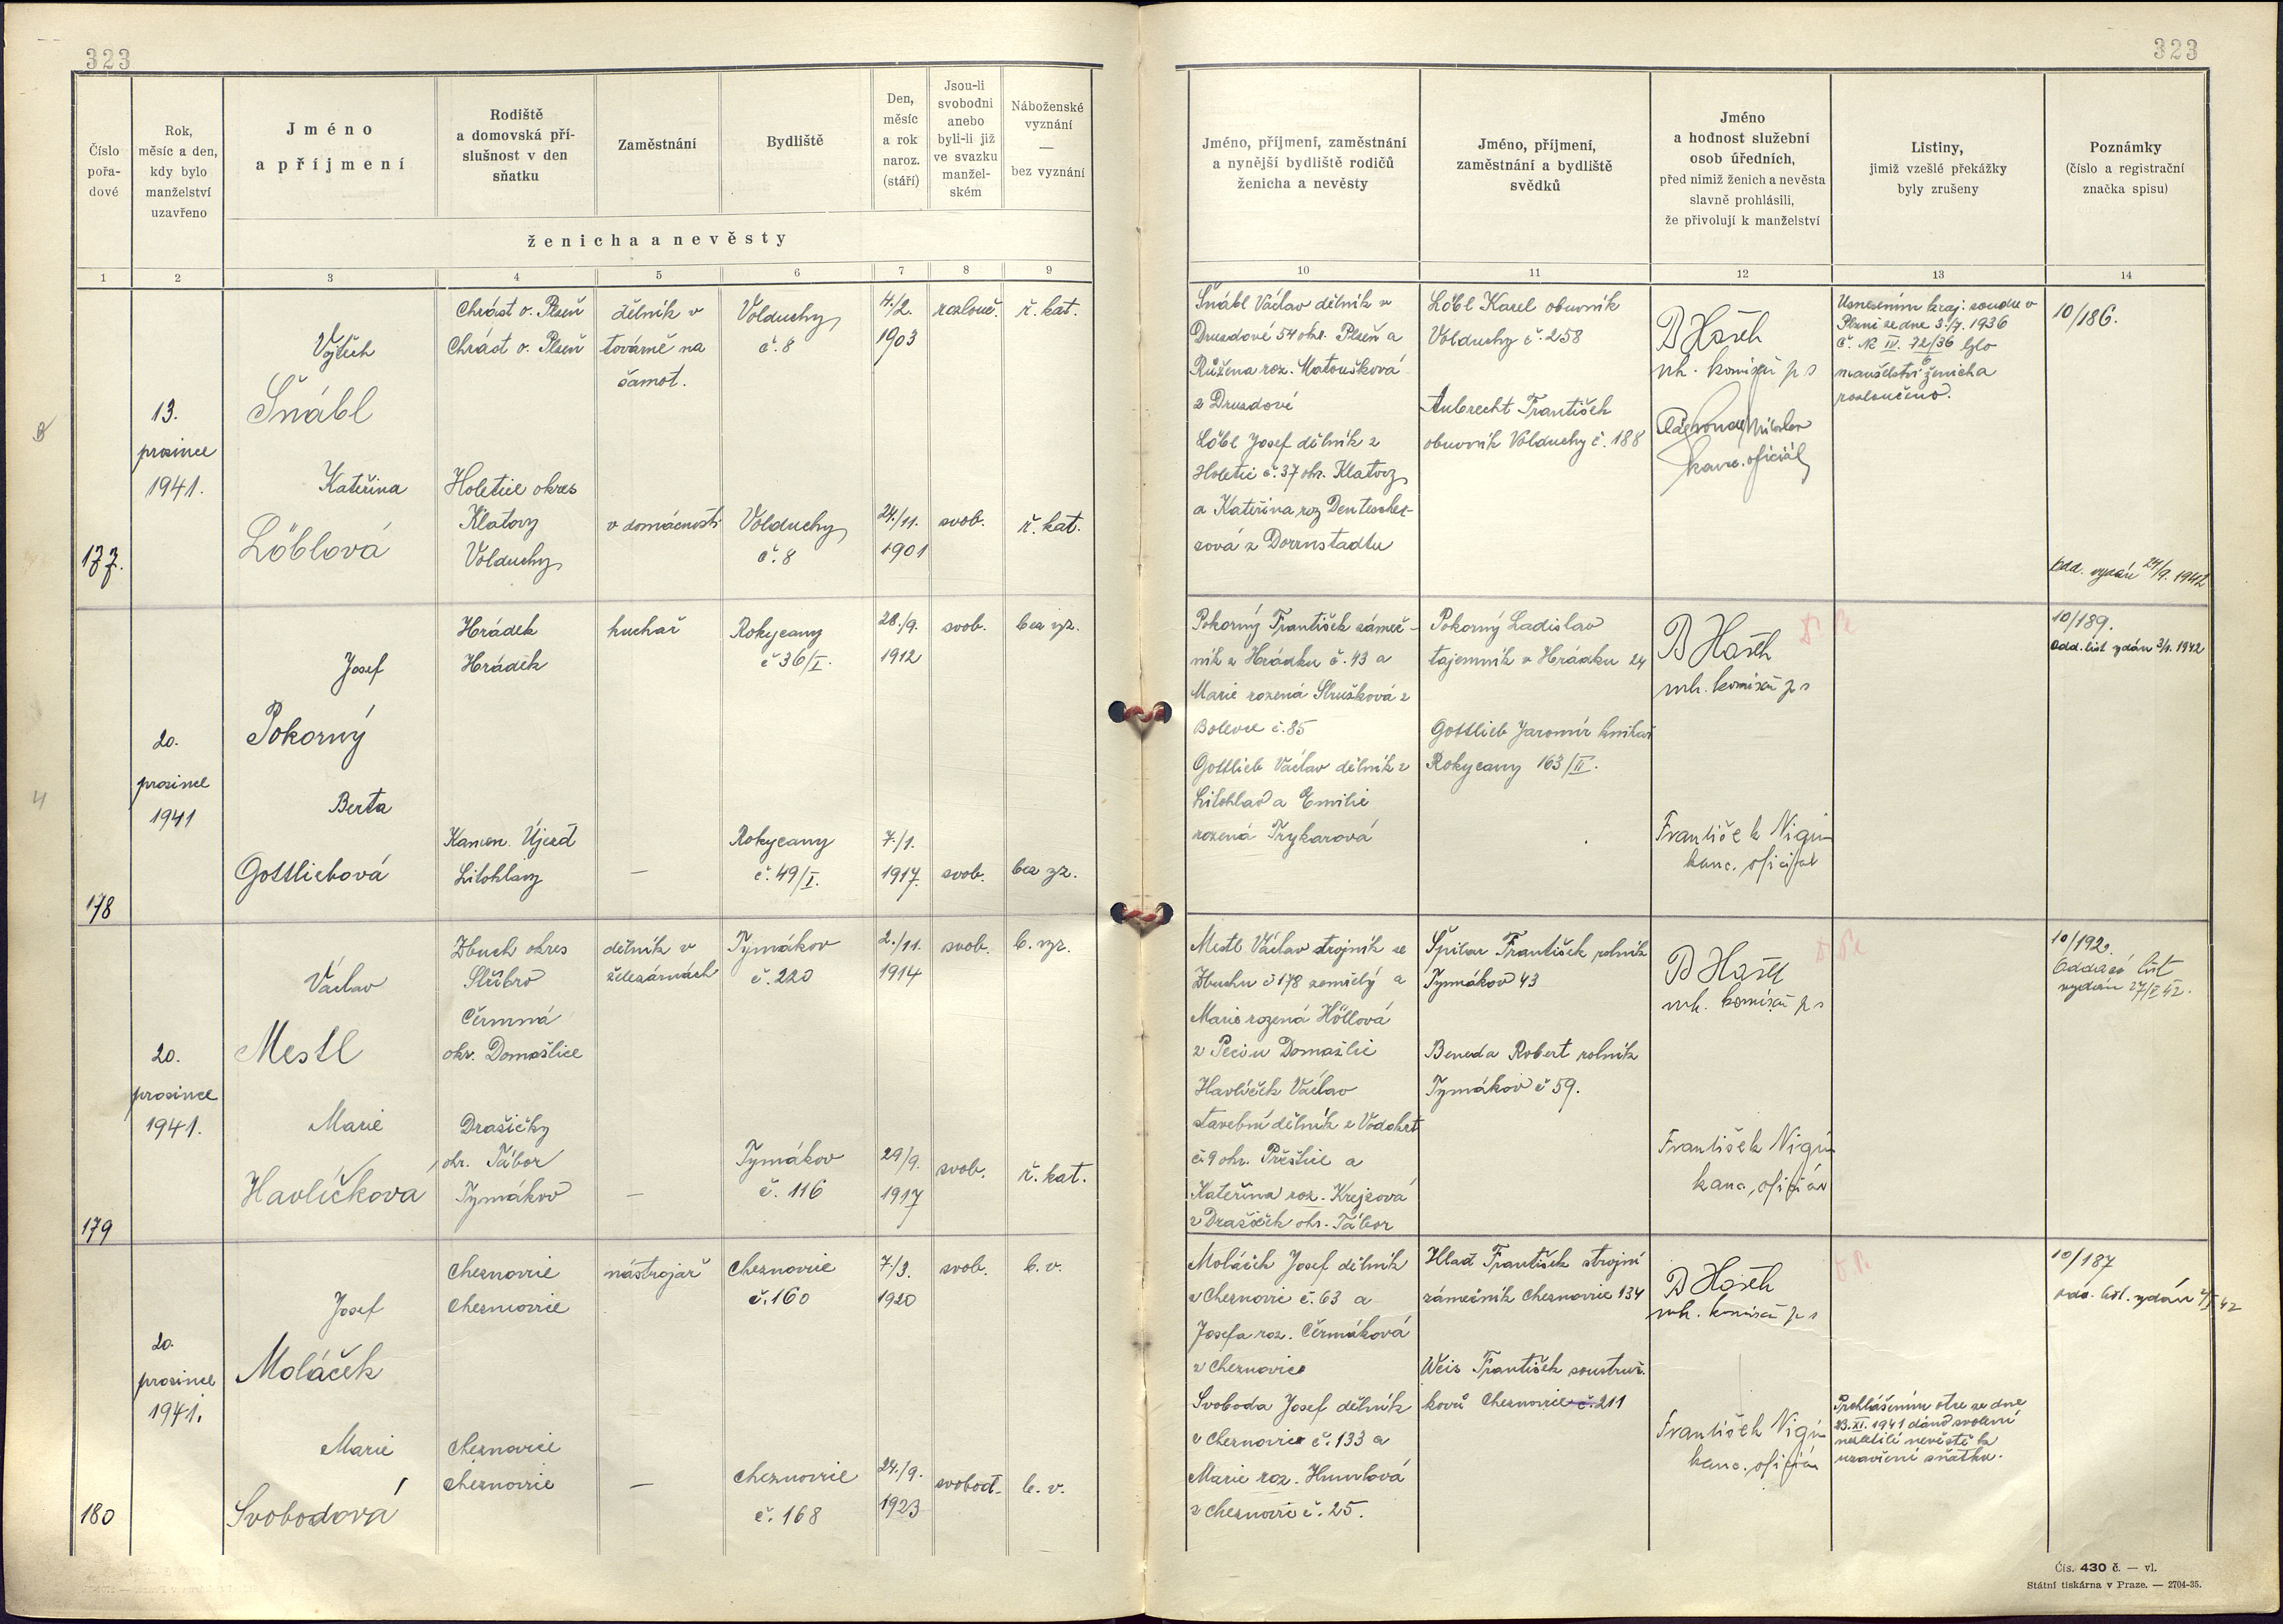 323
323
Číslo
pořa-
dové
Rok,
měsíc a den,
kdy bylo
manželství
uzavřeno
Jméno
a příjmení
Rodiště
a domovská pří-
slušnost v den
sňatku
Zaměstnání
Bydliště
Den,
měsíc
a rok
naroz.
(stáří)
Jsou-li
svobodni
anebo
byli-li již
ve svazku
manžel-
ském
Náboženské
vyznání
—
bez vyznání
ženicha a nevěsty
Jméno, příjmení, zaměstnání
a nynější bydliště rodičů
ženicha a nevěsty
Jméno, příjmení,
zaměstnání a bydliště
svědků
Jméno
a hodnost služební
osob úředních,
před nimiž ženich a nevěsta
slavně prohlásili,
že přivolují k manželství
Listiny,
jimiž vzešlé překážky
byly zrušeny
Poznámky
(číslo a registrační
značka spisu)
1 2 3 4 5 6 7 8 9
10 11 12 13 14
177.
13.
prosince
1941.
Vojtěch
Šnábl
Chrást o. Plseň
Chrást o. Plseň
dělník v
továrně na
šamot.
Volduchy
č. 8
4./2.
1903
rozlouč.
ř. kat.
Kateřina
Löblová
Holetice okres
Klatovy
Volduchy
v domácnosti
Volduchy
č. 8
24./11.
1901
svob.
ř. kat.
Šnábl Václav dělník v
Druzdové 54 okr. Plseň a
Růžena roz. Matoušková
z Druzdové
Löbl Josef dělník z
Holetic č. 37 okr. Klatovy
a Kateřina roz
Löbl Karel obuvník
Volduchy č. 258
Aubrecht František
obuvník Volduchy č. 188
B Hašek
vrh. komisař p s
kanc. oficiál
Usnesením kraj. soudu v
Plzni ze dne 3./7. 1936
č. Nc IV. 72/36 bylo
6
manželství ženicha
rozloučeno.
10/186.
Odd. vydán 24/9. 1942
178
20.
prosince
1941
Josef
Pokorný
Hrádek
Hrádek
kuchař
Rokycany
č 36/I.
28./9.
1912
svob.
bez vyz.
Berta
Gottliebová
Kamen. Újezd
Litohlavy
—
Rokycany
č. 49/I.
7./1.
1917.
svob.
bez vz.
Pokorný František zámeč-
ník z Hrádku č. 43 a
Marie rozená
Bolevce č. 85
Gottlieb Václav dělník z
Litohlav a Emilie
rozená Trykarová
Pokorný Ladislav
tajemník v Hrádku 24
Gottlieb Jaromír knihař
Rokycany 163/II.
B Hašek
vrh. komisař p s
František Nigrin
kanc. oficiál
10/189.
Odd. list vydán 3/1. 1942
179
20.
prosince
1941.
Václav
Mestl
Zbuch okres
Stříbro
Čermná
okr. Domažlice
dělník v
železárnách
Tymákov
č. 220
2./11.
1914
svob.
b. vyz.
Marie
Havlíčkova
Dražičky
okr. Tábor
Tymákov
—
Tymákov
č. 116
29/9.
1917
svob.
ř. kat.
Mestl Václav strojník ze
Zbuchu č 178 zemřelý a
Marie rozená Höllová
z Pecinu Domažlic
Havlíček Václav
stavební dělník z Vodokrt
č. 9 okr. Přeštice a
Kateřina roz. Krejzová
z Dražiček okr. Tábor
Špilar František rolník
Tymákov 43
Beneda Robert rolník
Tymákov č 59.
B Hašek
vrh. komisař p s
František Nigrin
kanc. oficiál
10/192.
Oddací list
vydán 27/I 42.
180
20.
prosince
1941.
Josef
Moláček
Cheznovice
Cheznovice
nástrojař
Cheznovice
č. 160
7./3.
1920
svob.
b. v.
Marie
Svobodová
Cheznovice
Cheznovice
—
Cheznovice
č. 168
24./9.
1923
svobod.
b. v.
Moláček Josef dělník
z Cheznovic č. 63 a
Josefa roz. Čermáková
z Cheznovice
Svoboda Josef dělník
z Cheznovice č. 133 a
Marie roz. Humlová
z Cheznovic č. 25.
Hlad František strojní
zámečník Cheznovice 134
Weis František soustruž.
kovů Cheznovice č. 211
B Hašek
vrh. komisař p s
František Nigrin
kanc. oficiál
Prohlášením otce ze dne
23. XI. 1941 dáno svolení
nezletilé nevěstě k
uzavření sňatku.
10/187
odd. list. vydán
Čís. 430 č. — vl.
Státní tiskárna v Praze. — 2704-35.